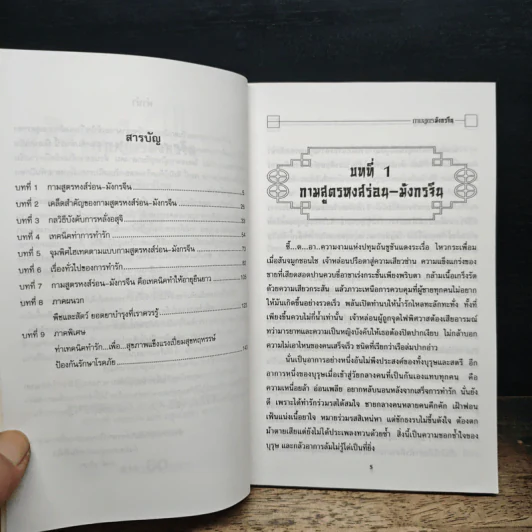 สารบัญ
บทที่ 1 กามสูตรหงส์ร่อน-มังกรจีน 5
บทที่ 2 เคล็ดสำคัญของกามสูตรหงส์ร่อน-มังกรจีน
บทที่ 3 กลวิธีบังคับการหลั่งอสุจิ
บทที่ 4 เทคนิคท่าการทำรัก
บทที่ 5 จุมพิตไฮเทคตามแบบกามสูตรหงส์ร่อน-มังกรจีน
บทที่ 6 เรื่องทั่วไปของการทำรัก
บทที่ 7 กามสูตรหงส์ร่อน-มังกรจีน คือเทคนิคทำให้อายุยืนยาว
บทที่ 8 ภาคผนวก
พืชและสัตว์ ยอดยาบำรุงที่เราควรรู้
บทที่ 9 ภาคพิเศษ
ท่าเทคนิคทำรัก...เพื่อ...สุขภาพแข็งแรงเปี่ยมสุขทุกวรรษ์
ป้องกันรักษาโรคภัย
กามสูตรมังกรจีน
บทที่ 1
กามสูตรหงส์ร่อน-มังกรจีน
ซี้...ด...อา..ความงามแห่งปทุมถันชูชันแดงระเรื่อ ไหวกระเพื่อม
เมื่อสันจมูกชอนไช เจ้าหล่อนปรือตาสู่ความเสียวซ่าน ความแข็งแกร่งของ
ชายที่เสียดสอดปานควบขี่อาชาเร่งกระชั้นเพียงพริบตา กล้ามเนื้อเกร็งรัด
ด้วยความเสียวกระสัน แล้วภาวะเหนือการควบคุมที่ผู้ชายทุกคนไม่อยาก
ให้มันเกิดขึ้นอย่างรวดเร็ว พลันเปิดทำนบให้น้ำรักไหลทะลักทะเทิ้ง ทั้งที่
เพียงขี่ขย่มควบไม่กี่น้ำเท่านั้น เจ้าหล่อนผู้ถูกจุดไฟพิศวาสต้องเสียอารมณ์
ทว่ามารยาทและความเป็นหญิงบังคับให้เธอต้องปิดปากเงียบ ไม่กล้าบอก
ความไม่เอาไหนของคนเสร็จเร็ว ชนิดที่เรียกว่าเรือล่มปากอ่าว
นั่นเป็นอาการอย่างหนึ่งอันไม่พึงประสงค์ของทั้งบุรุษและสตรี อีก
อาการหนึ่งของบุรุษเมื่อเข้าสู่วัยกลางคนที่เป็นกันเองแทบทุกคน คือ
ความเหนื่อยล้า อ่อนเพลีย อยากหลับนอนหลังจากเสร็จการทำรัก นั่นยัง
ดี เพราะได้ทำรักร่วมรสได้สมใจ ชายกลางคนหลายคนคึกคัก เฝ้าฟอน
เฟ้นแน่งเนื้อยาใจ หมายร่วมรสสิเนหา แต่ชักธงรบไม่ขึ้นดังใจ ต้องตก
ม้าตายเสียแต่ยังไม่ได้ประเพลงทวนด้วยซ้ำ สิ่งนี้เป็นความชอกช้ำใจของ
บุรุษ และกลัวอาการล้มไม่รู้ได้เป็นที่ยิ่ง
5